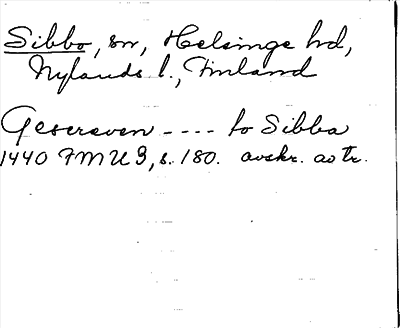 Sibbo, sn, Helsinge hd,
Nylands l., Finland
Gescreven ---- to Sibba
1440 FMU 3, s. 180. avskr. av tr.